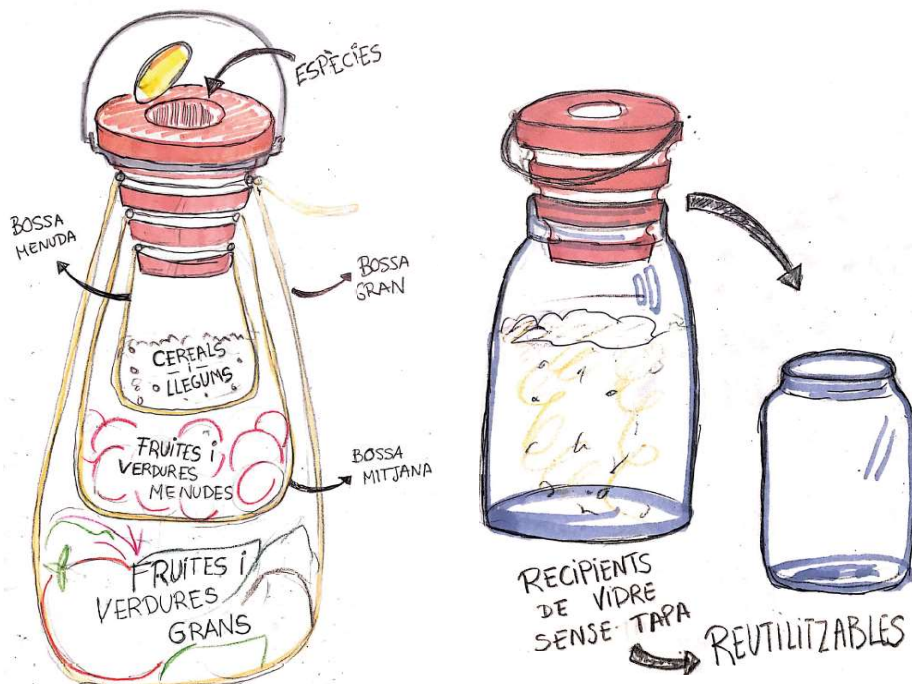 ESPÈCIES
BOSSA
MENUDA
BOSSA
GRAN
CEREALS
- i -
LLEGUMS
FRUITES i
VERDURES
MENUDES
BOSSA
MITJANA
FRUITES i
VERDURES
GRANS
RECIPIENTS
DE VIDRE
SENSE TAPA
REUTILITZABLES